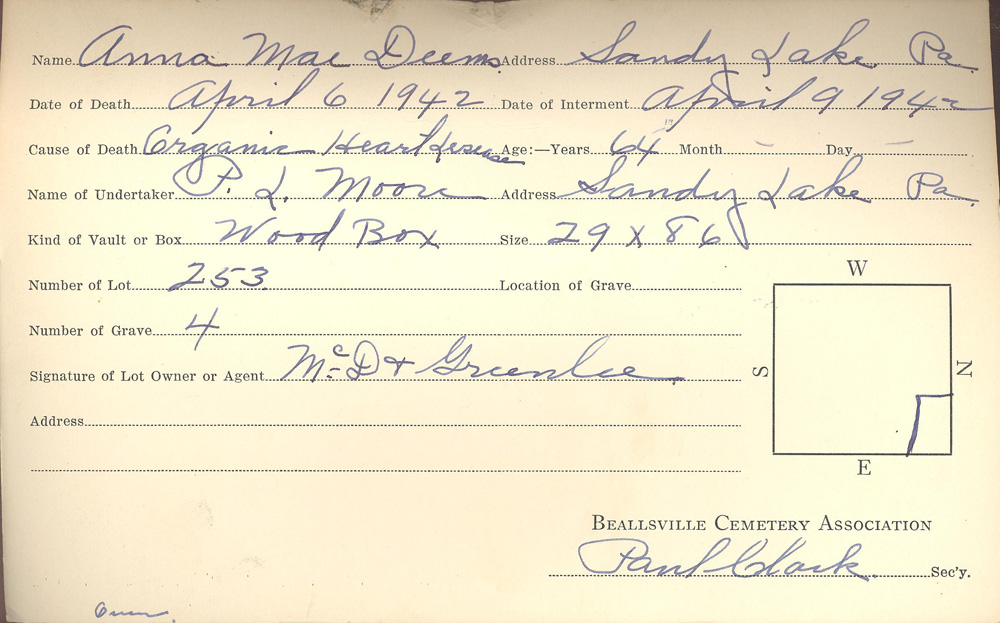 Name Anna Mae Deems Address Sandy Lake Pa.
Date of Death April 6 1942 Date of Interment April 9 1942
Cause of Death Organic Heart Desease Age:—Years 64 Month – Day –
Name of Undertaker P. L. Moore Address Sandy Lake Pa.
Kind of Vault or Box Wood Box Size 29 x 86
Number of Lot 253. Location of Grave
Number of Grave 4
Signature of Lot Owner or Agent McD & Greenlee
Address
W
S
N
E
BEALLSVILLE CEMETERY ASSOCIATION
Paul Clark Sec'y.